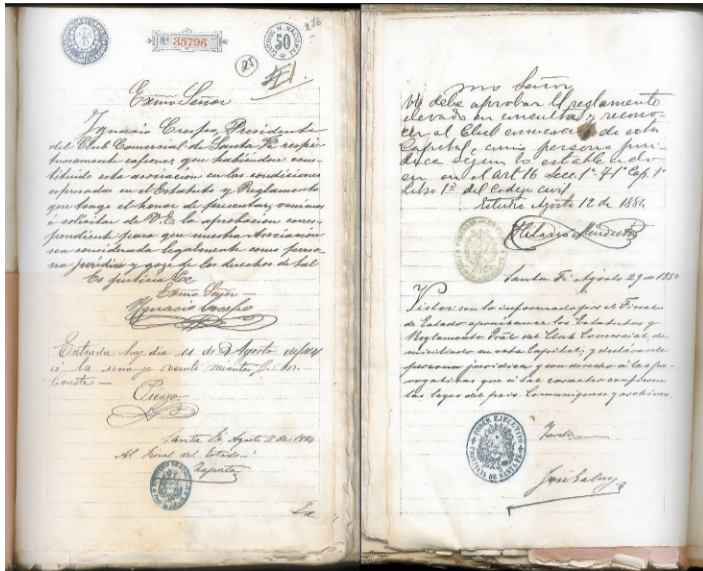 Nº 35796
50
236
Exmo Señor
Ignacio Crespo, Presidente
del Club Comercial de Santa Fé respe-
tuosamente espone: que habiéndose cons-
tituido esta asociacion en las condiciones
espresadas en el Estatuto y Reglamento
que tengo el honor de presentar, venimos
á solicitar de V.E. la aprobacion corres-
pondiente para que nuestra Asociacion
sea considerada legalmente como perso-
na jurídica y goze de los derechos de tal
Es justicia Ex
Exmo Señor
Ignacio Crespo
Entrada hoy dia 11 de Agosto
á la una y veinte minutos
Conste
Crespo
Santa Fé Agosto 11 de 1884
Al Fiscal del Estado
Zapata
Exmo Señor
VE debe aprobar el reglamento
elevado en consulta y recono-
cer al Club comercial de esta
Capital, como persona juri-
dica segun lo establecido
en el Art 16 Secc. 1ª Cap. 1º
Libro 1º del Codigo civil.
Agosto 12 de 1884
Santa Fé Agosto 29 de 1884
Vistos: con lo informado por el Fiscal
de Estado apruébanse los Estatutos y
Reglamento del Club Comercial, do-
miciliado en esta Capital; y declárase
persona jurídica y con derecho á las pre-
rogativas que á tal caracter confieren
las leyes del pais. Comuniquese y archivese.
PODER EJECUTIVO
PROVINCIA DE SANTA FE
Zavalla
José Galvez